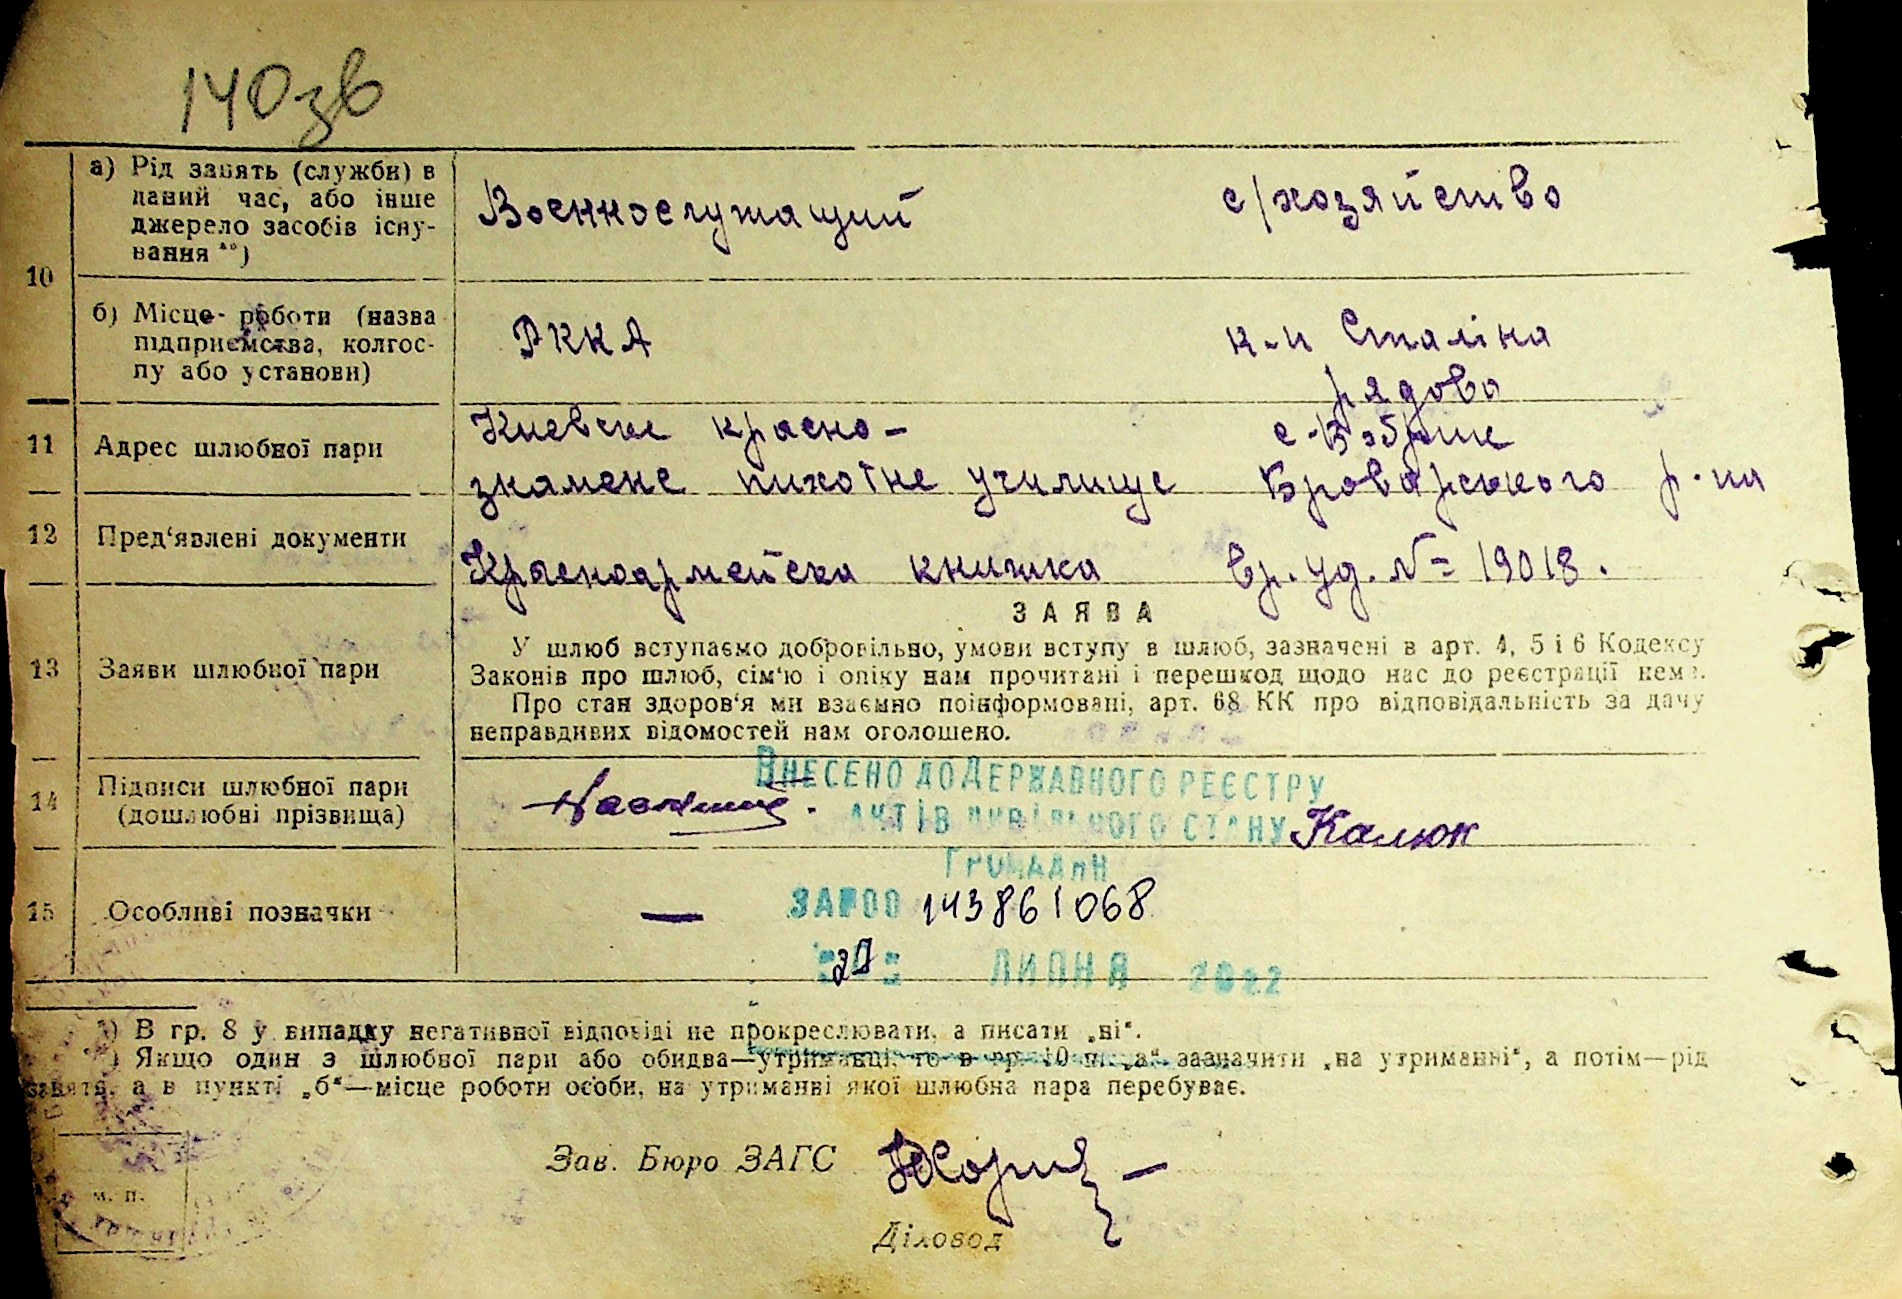 140зв
10
а) Рід занять (служби) в
даний час, або інше
джерело засобів існу-
вання **)
Военнослужащий
с/хозяйство
б) Місце роботи (назва
підприємства, колгос-
пу або установи)
РККА
к-п Сталіна
рядова
11
Адрес шлюбної пари
Киевске красно-
знамене пихотне училище
с.
Броварського р-на
12
Пред'явлені документи
Красноармейска книжка
вр. уд. № 19018.
ЗАЯВА
13
Заяви шлюбної пари
У шлюб вступаємо добровільно, умови вступу в шлюб, зазначені в арт. 4, 5 і 6 Кодексу
Законів про шлюб, сім'ю і опіку нам прочитані і перешкод щодо нас до реєстрації нема.
Про стан здоров'я ми взаємно поінформовані, арт. 68 КК про відповідальність за дачу
неправдивих відомостей нам оголошено.
14
Підписи шлюбної пари
(дошлюбні прізвища)
Калюк
ВНЕСЕНО ДО ДЕРЖАВНОГО РЕЄСТРУ
АКТІВ ЦИВІЛЬНОГО СТАНУ
ГРОМАДЯН
15
Особливі позначки
—
ЗА №00 143861068
20 ЛИПНЯ 2022
*) В гр. 8 у випадку негативної відповіді не прокреслювати, а писати „ні“.
**) Якщо один з шлюбної пари або обидва—утриманці, то в гр. 10 п. „а“ зазначити „на утриманні“, а потім—рід
занять, а в пункті „б“—місце роботи особи, на утриманні якої шлюбна пара перебуває.
Зав. Бюро ЗАГС
м. п.
Діловод